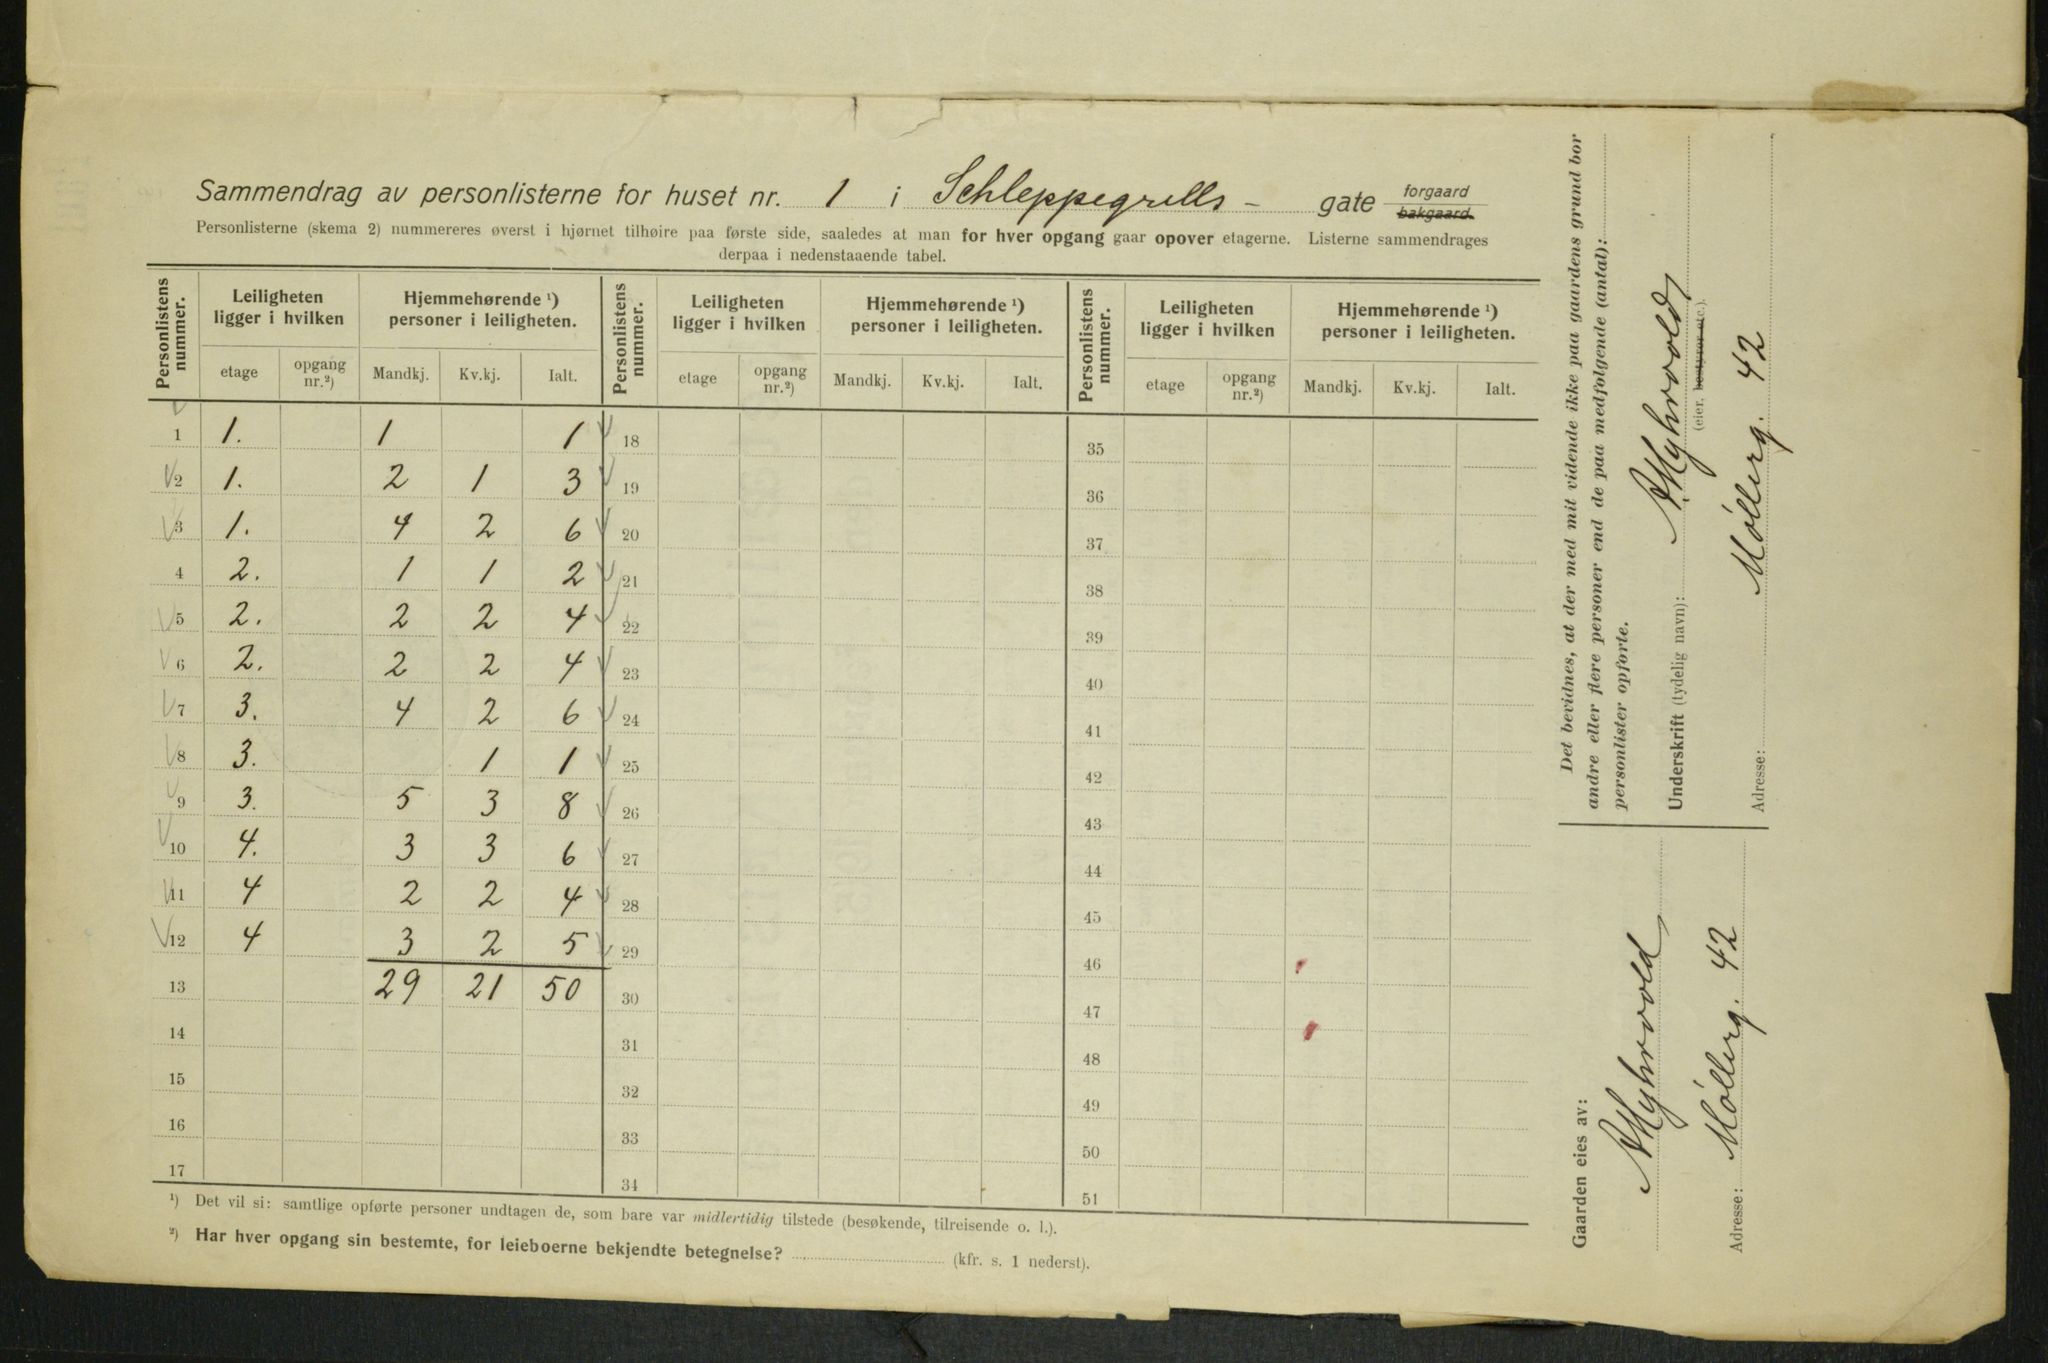 Sammendrag av personlisterne for huset nr. 1 i Schleppegrells - gate forgaard bakgaard.
Personlisterne (skema 2) nummereres øverst i hjørnet tilhøire paa første side, saaledes at man for hver opgang gaar opover etagerne. Listerne sammendrages
derpaa i nedenstaaende tabel.
Personlistens nummer. Leiligheten ligger i hvilken Hjemmehørende ¹) personer i leiligheten. Personlistens nummer. Leiligheten ligger i hvilken Hjemmehørende ¹) personer i leiligheten. Personlistens nummer. Leiligheten ligger i hvilken Hjemmehørende ¹) personer i leiligheten.
etage opgang nr.²) Mandkj. Kv.kj. Ialt. etage opgang nr.²) Mandkj. Kv.kj. Ialt. etage opgang nr.²) Mandkj. Kv.kj. Ialt.
1 1. 1 1 18 35
2 1. 2 1 3 19 36
3 1. 4 2 6 20 37
4 2. 1 1 2 21 38
5 2. 2 2 4 22 39
6 2. 2 2 4 23 40
7 3. 4 2 6 24 41
8 3. 1 1 25 42
9 3. 5 3 8 26 43
10 4. 3 3 6 27 44
11 4 2 2 4 28 45
12 4 3 2 5 29 46
13 29 21 50 30 47
14 31 48
15 32 49
16 33 50
17 34 51
¹) Det vil si: samtlige opførte personer undtagen de, som bare var midlertidig tilstede (besøkende, tilreisende o. l.).
²) Har hver opgang sin bestemte, for leieboerne bekjendte betegnelse? (kfr. s. 1 nederst).
Det bevidnes, at der med mit vidende ikke paa gaardens grund bor
andre eller flere personer end de paa medfølgende (antal):
personlister opførte.
Underskrift (tydelig navn): A Myhrvold
(eier, bestyrer etc.).
Adresse: Møllerg. 42
Gaarden eies av:
A Myhrvold
Adresse: Møllerg. 42